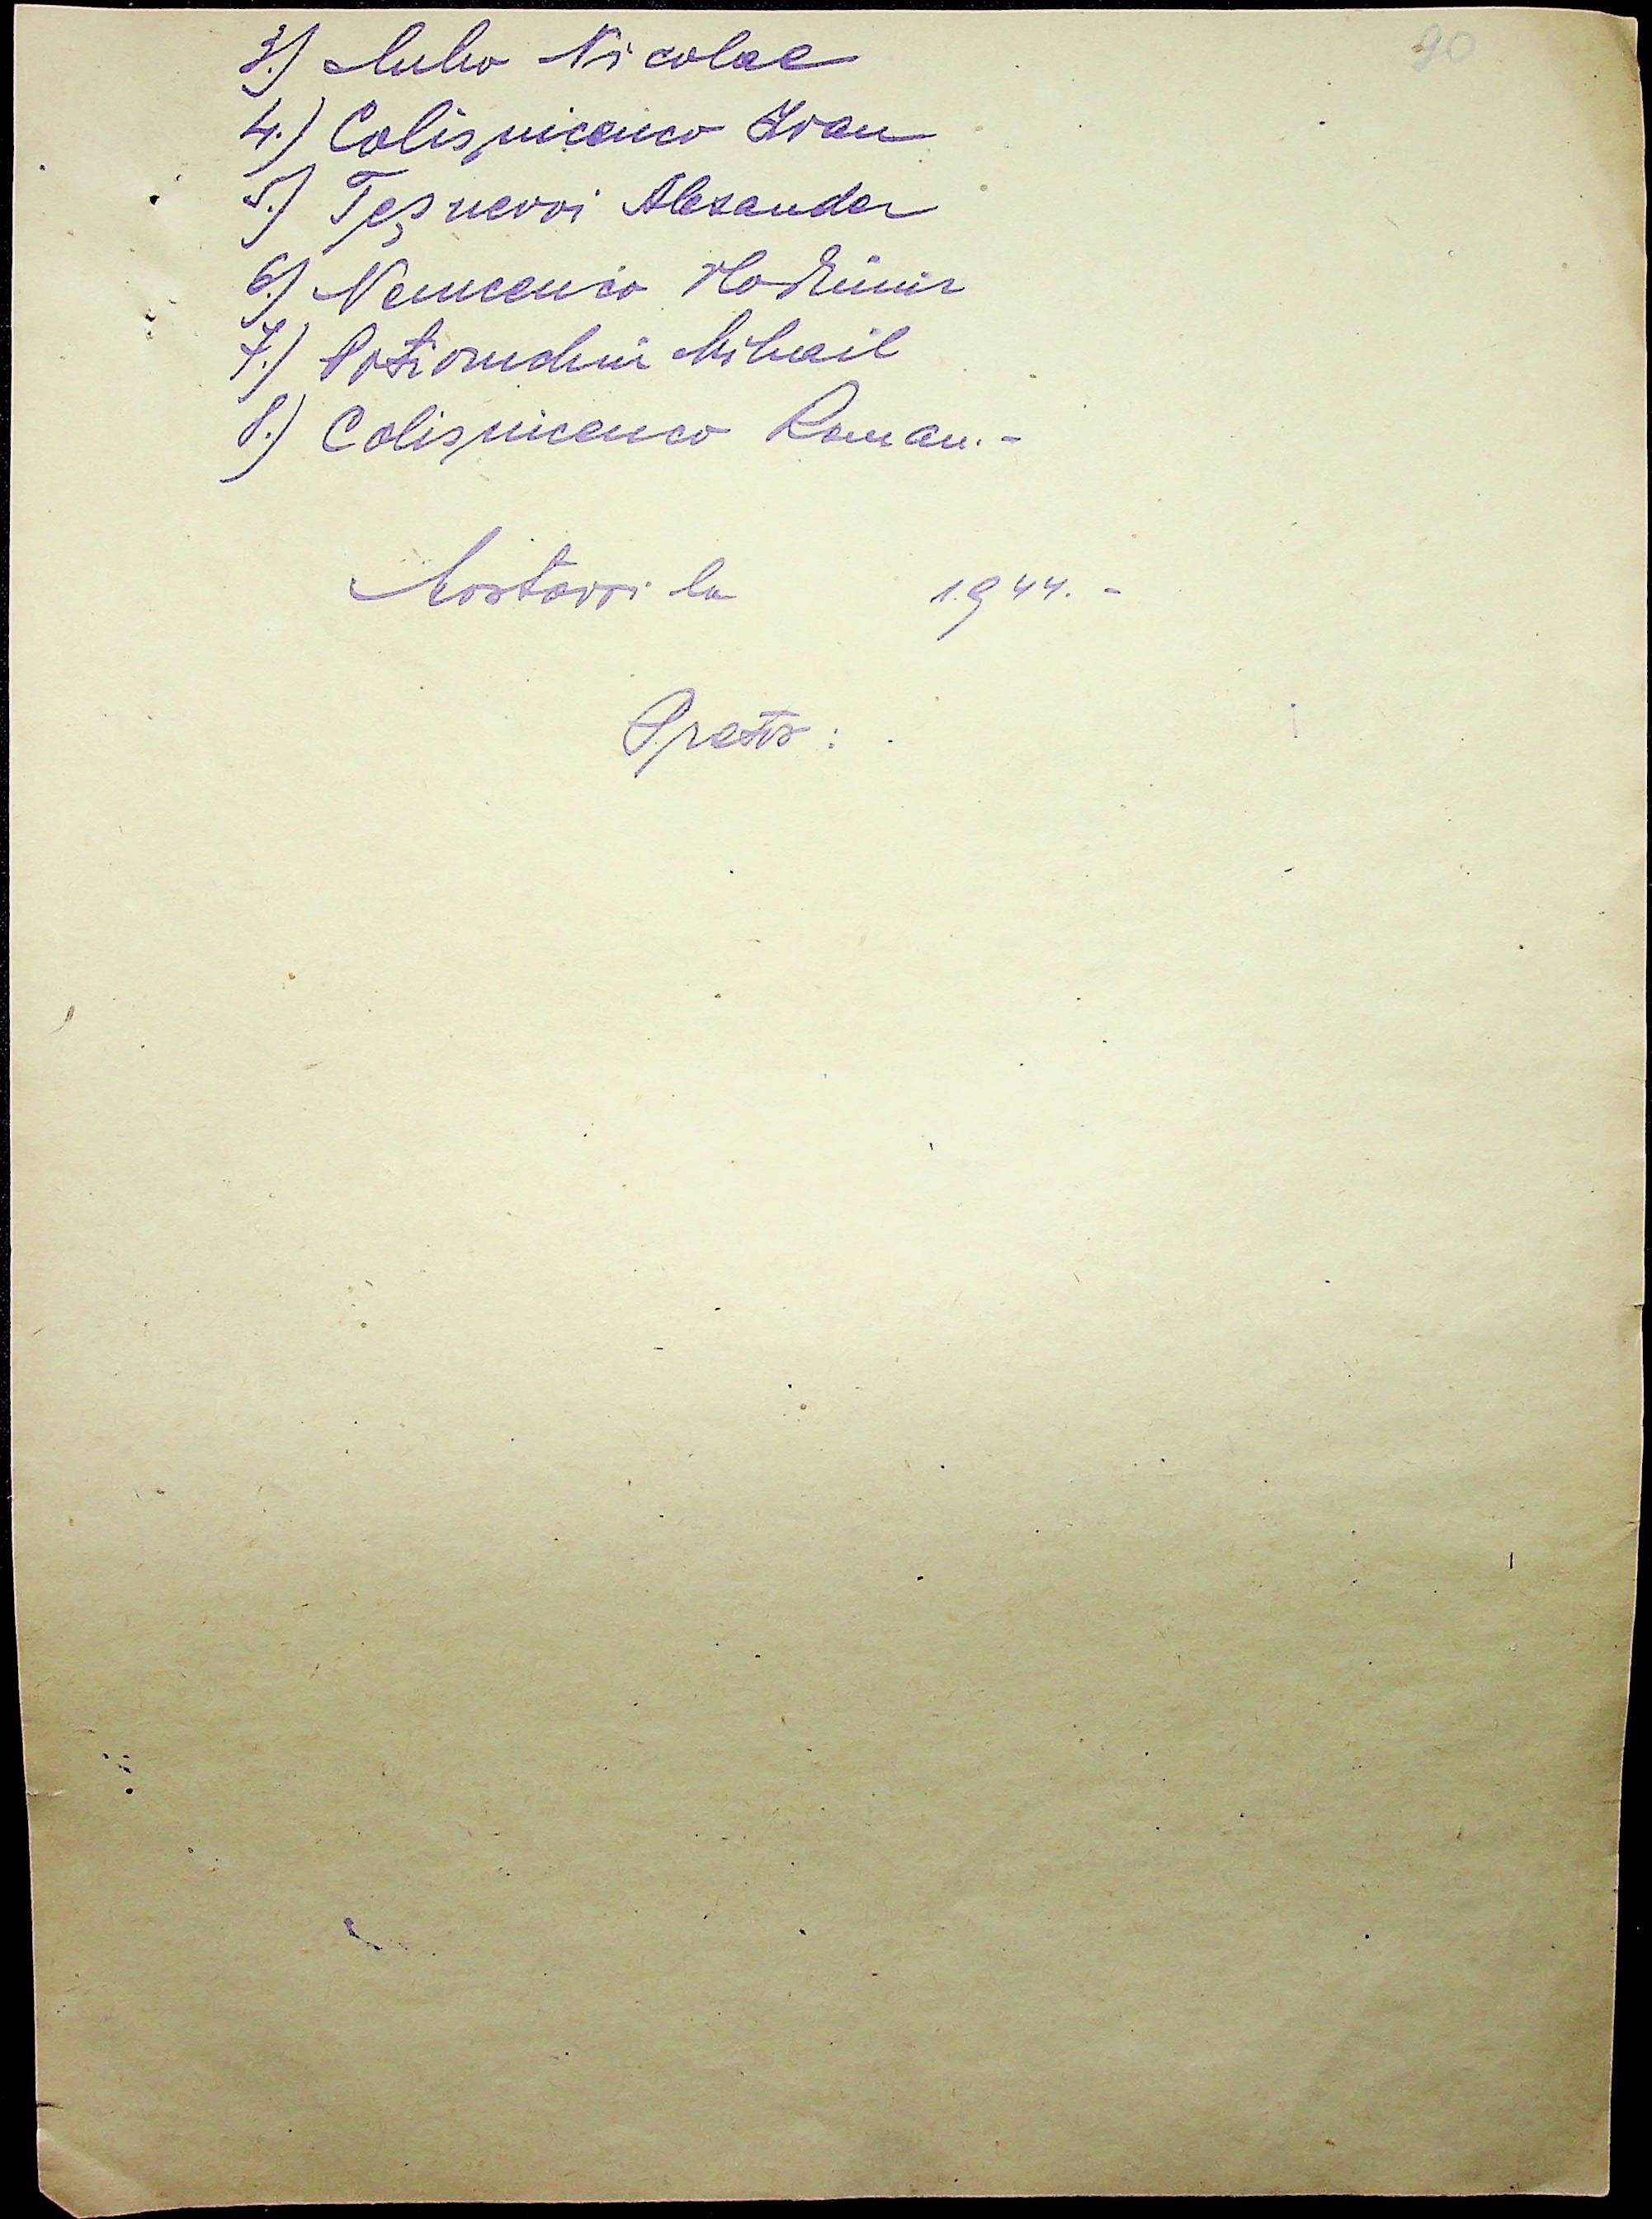 90
3.) Muho Nicolae
4.) Colisnicenco Ivan
5.) Teșnevoi Alexander
6.) Nemcenco Vladimir
7.) Mihail
8.) Colisnicenco Roman.-
Mostovoi la 1944.-
Pretor: